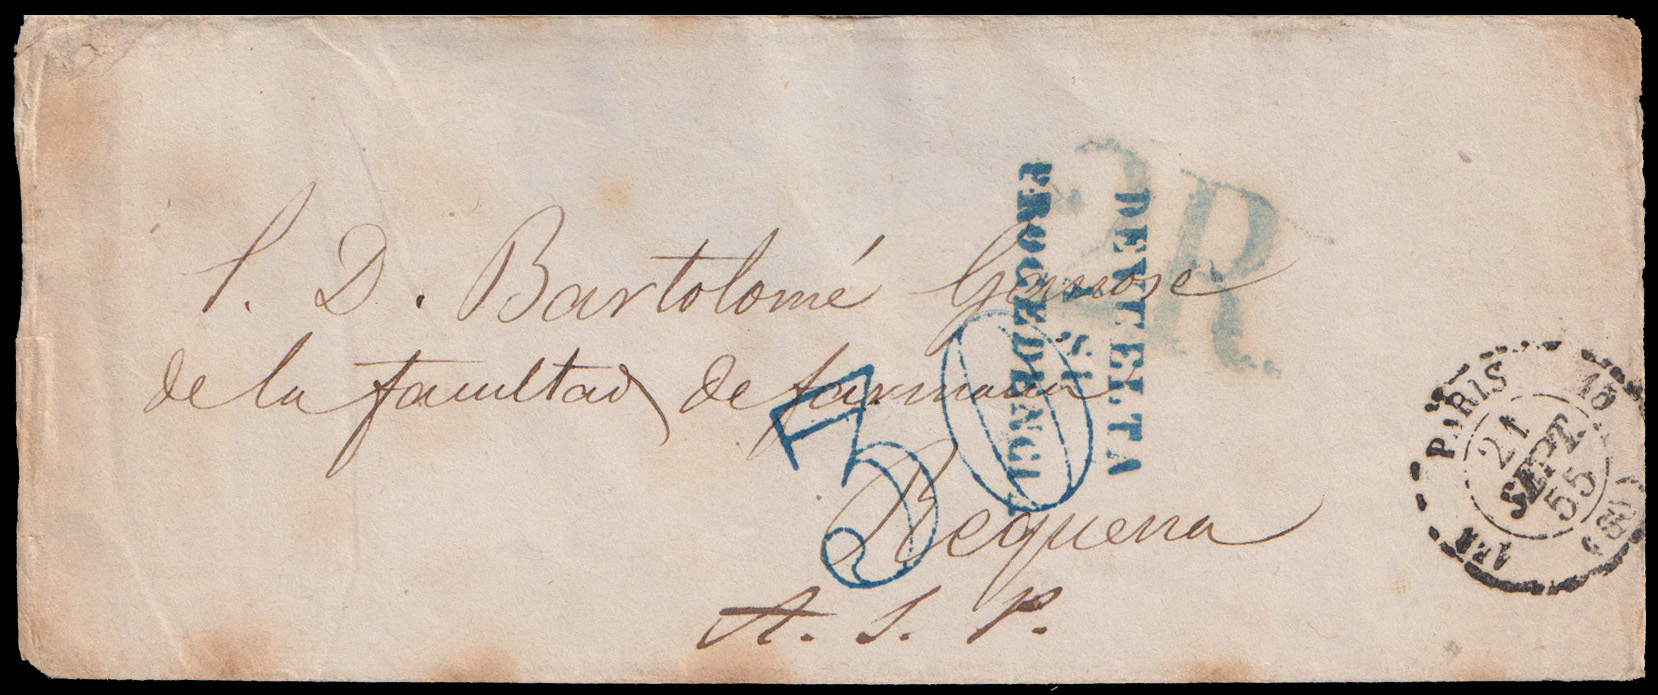 S. D. Bartolomé
de la facultad de farmacia
Requena
A. S. P.
2R
DEVUELTA
A SU
PROCEDENCIA
50
PARIS
21
SEPT.
55
(60)